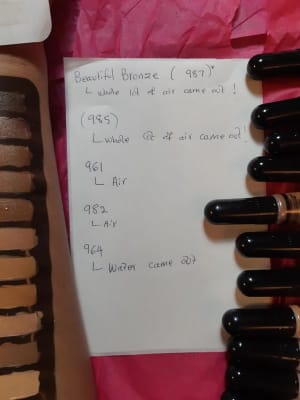 Beautiful Bronze (987)*
L whole lot of air came out !
(985)
L whole lot of air came out!
961
L Air
982
L Air
964
L Water came out